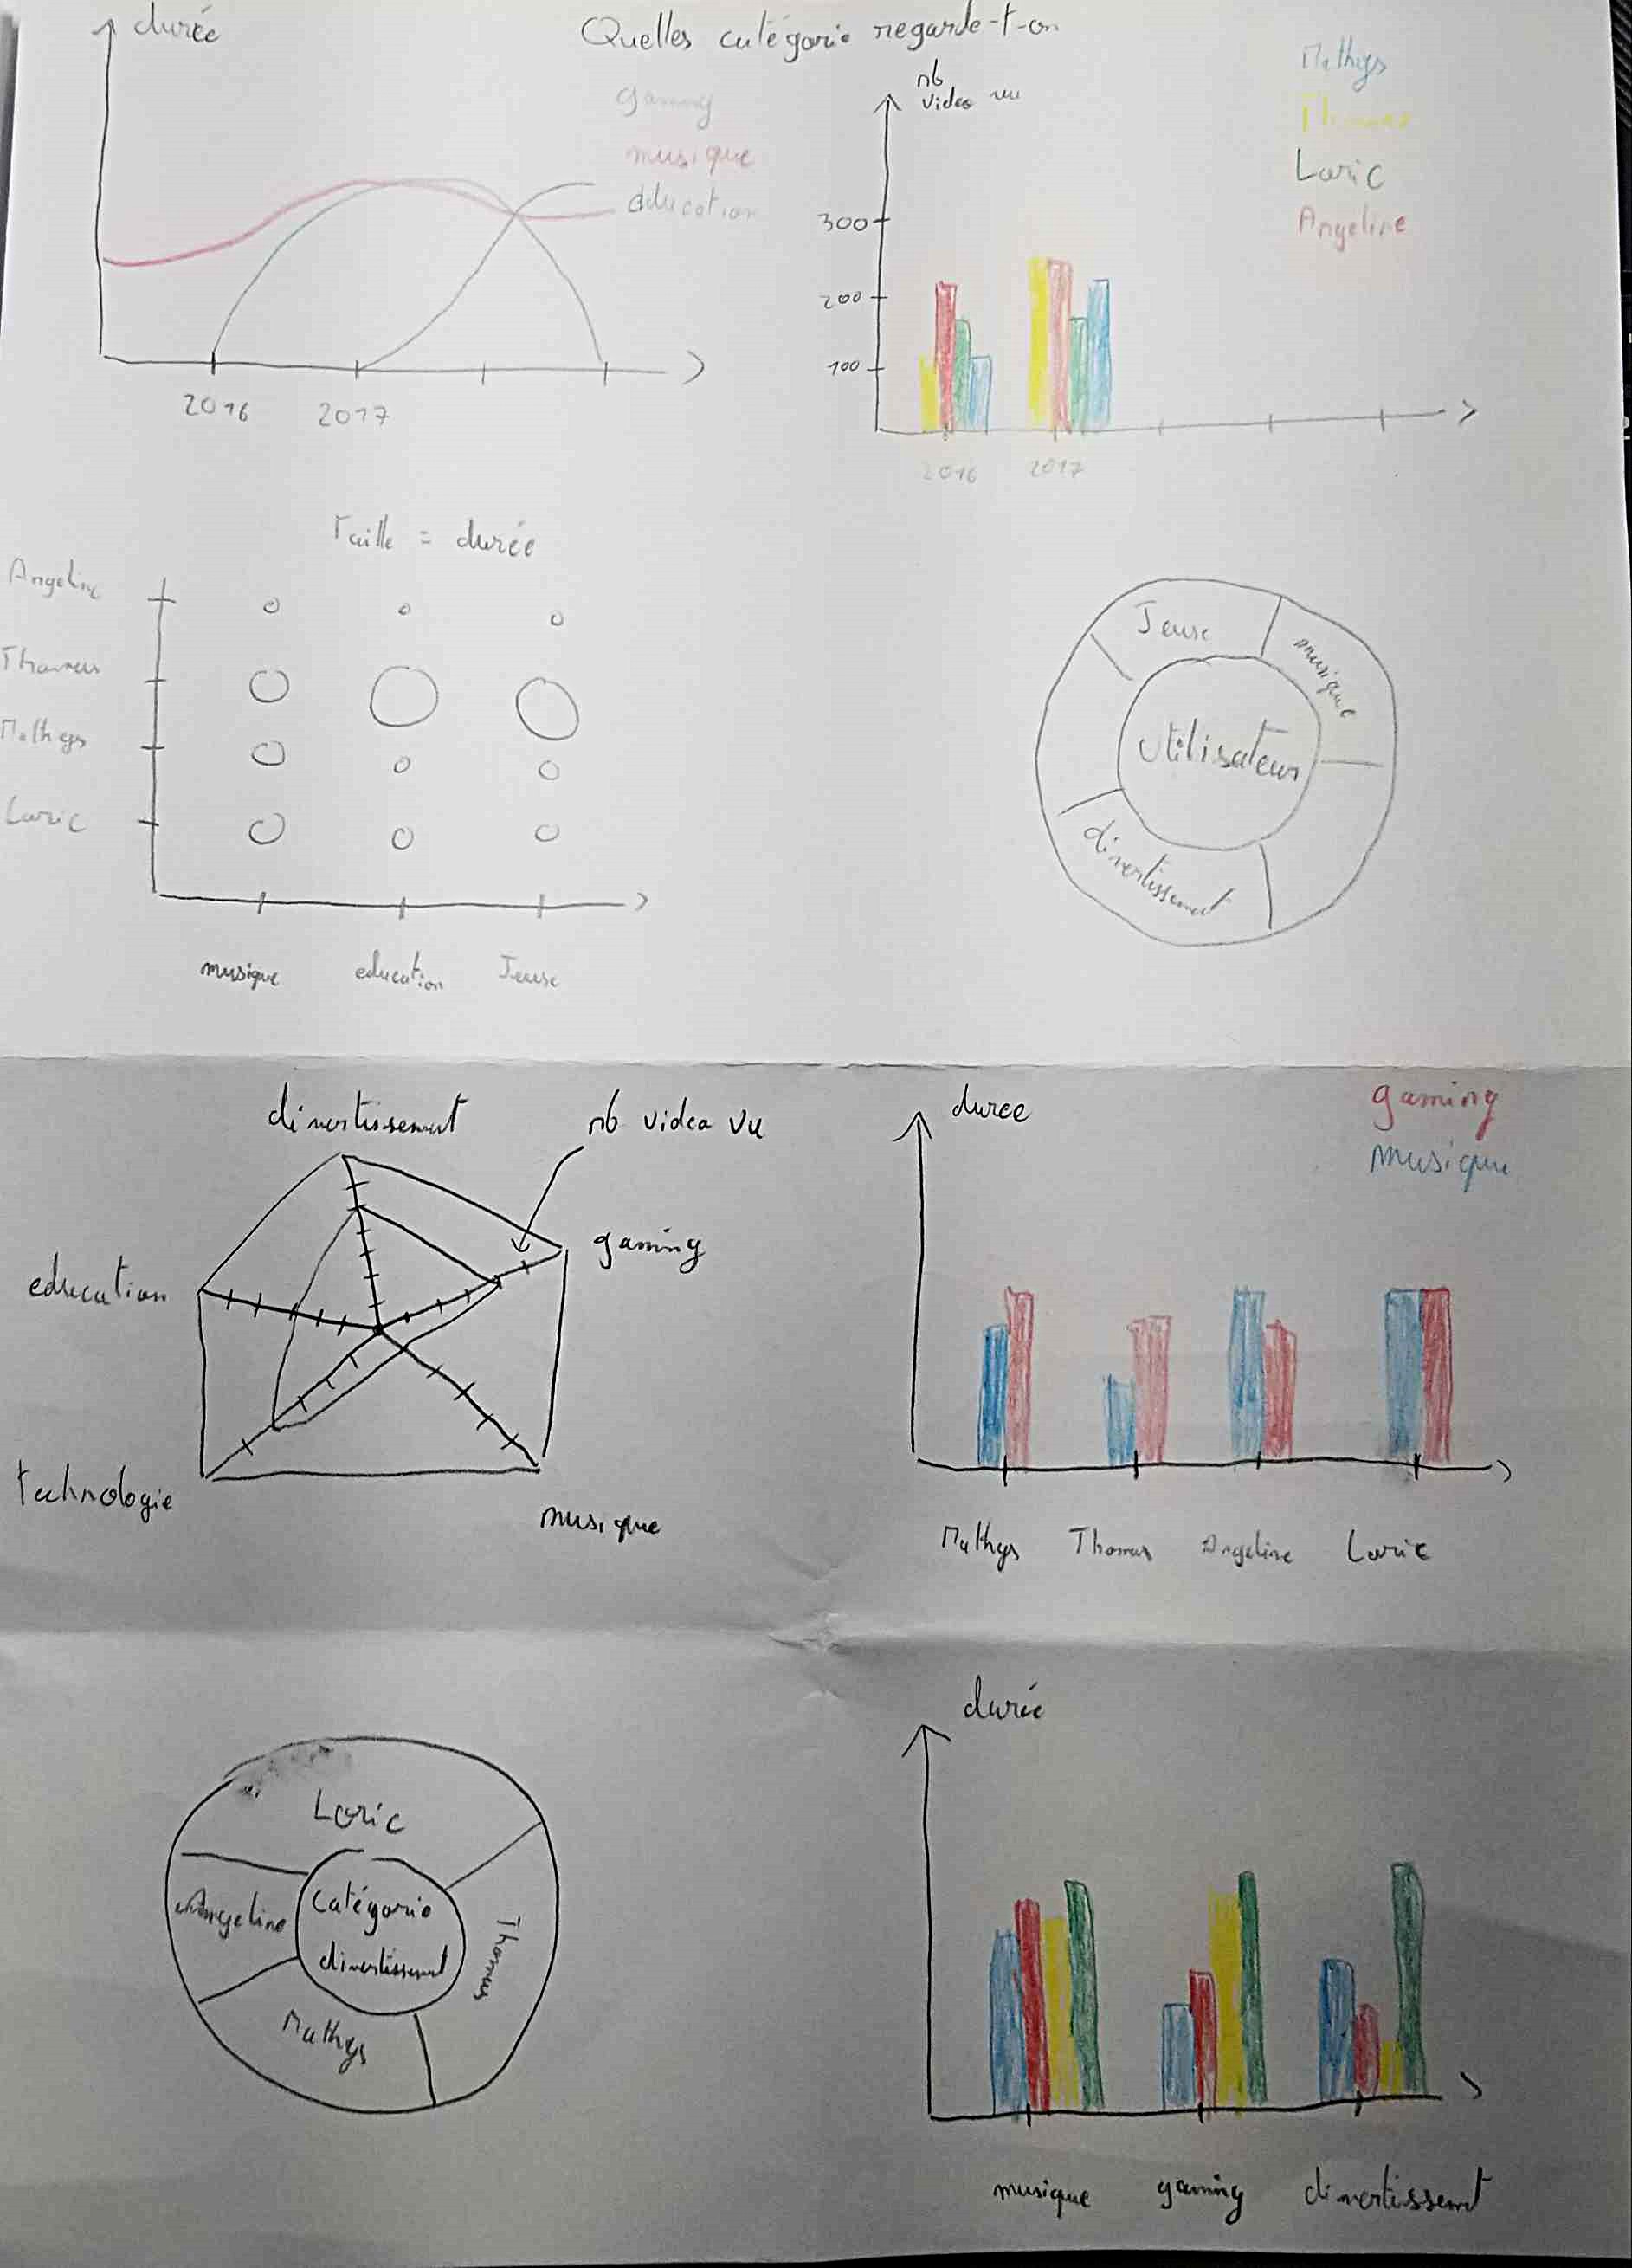 durée
Quelles catégorie regarde-t-on
gaming
musique
éducation
2016
2017
nb
video vu
300
200
100
2016
2017
Mathys
Thomas
Loric
Angeline
Taille = durée
Angeline
Thomas
Mathys
Loric
musique
education
Jeuse
Jeuse
musique
Utilisateur
divertissement
divertissement
nb video vu
gaming
education
technologie
musique
duree
gaming
musique
Mathys
Thomas
Angeline
Loric
Loric
Angeline
Catégorie
divertissement
Thomas
Mathys
durée
musique
gaming
divertissement